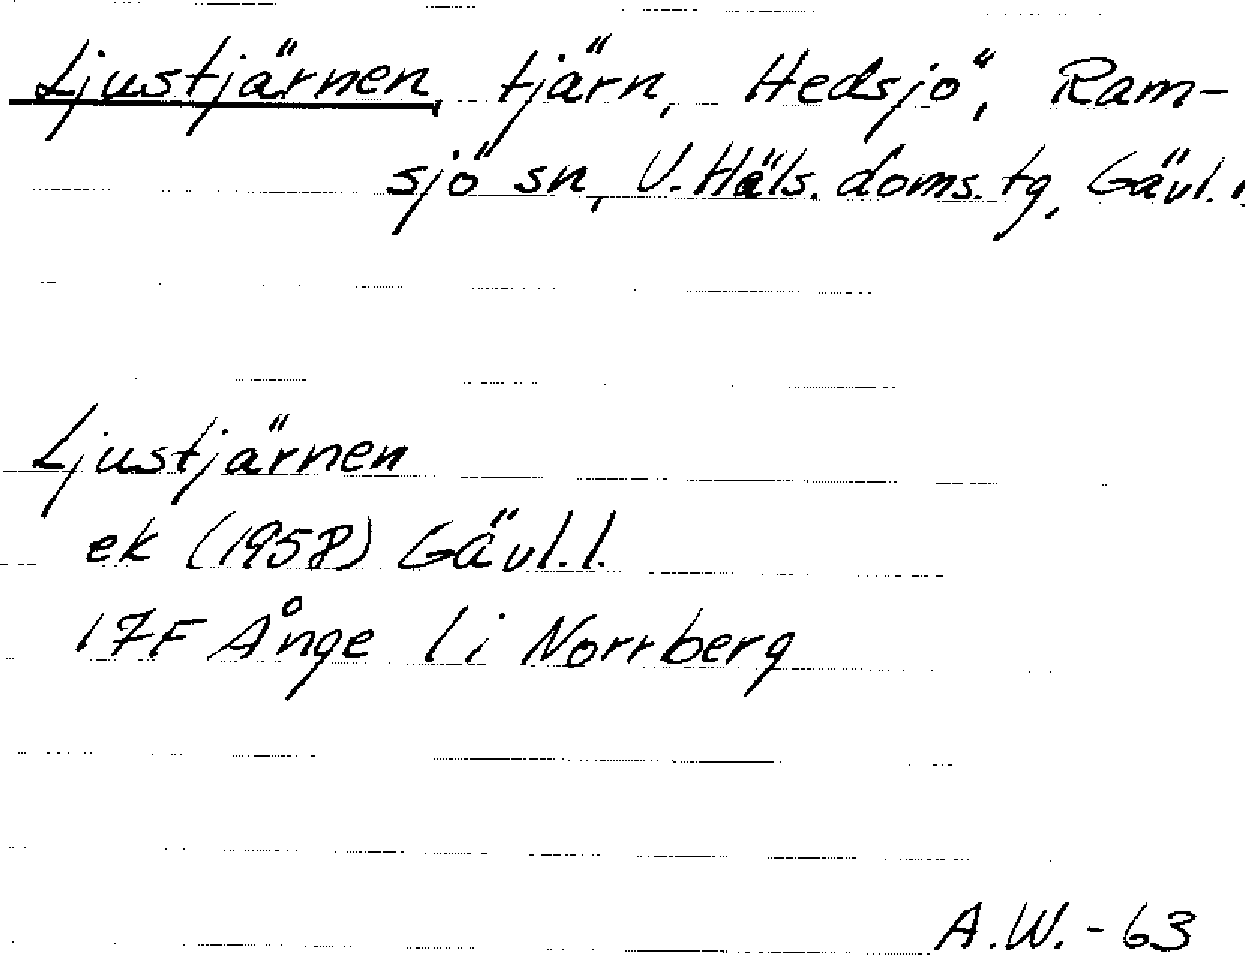 Ljustjärnen, tjärn, Hedsjö, Ram-
sjö sn, V. Häls. doms. tg, Gävl. l.
Ljustjärnen
ek (1958) Gävl. l.
17F Ånge l i Norrberg
A.W. - 63